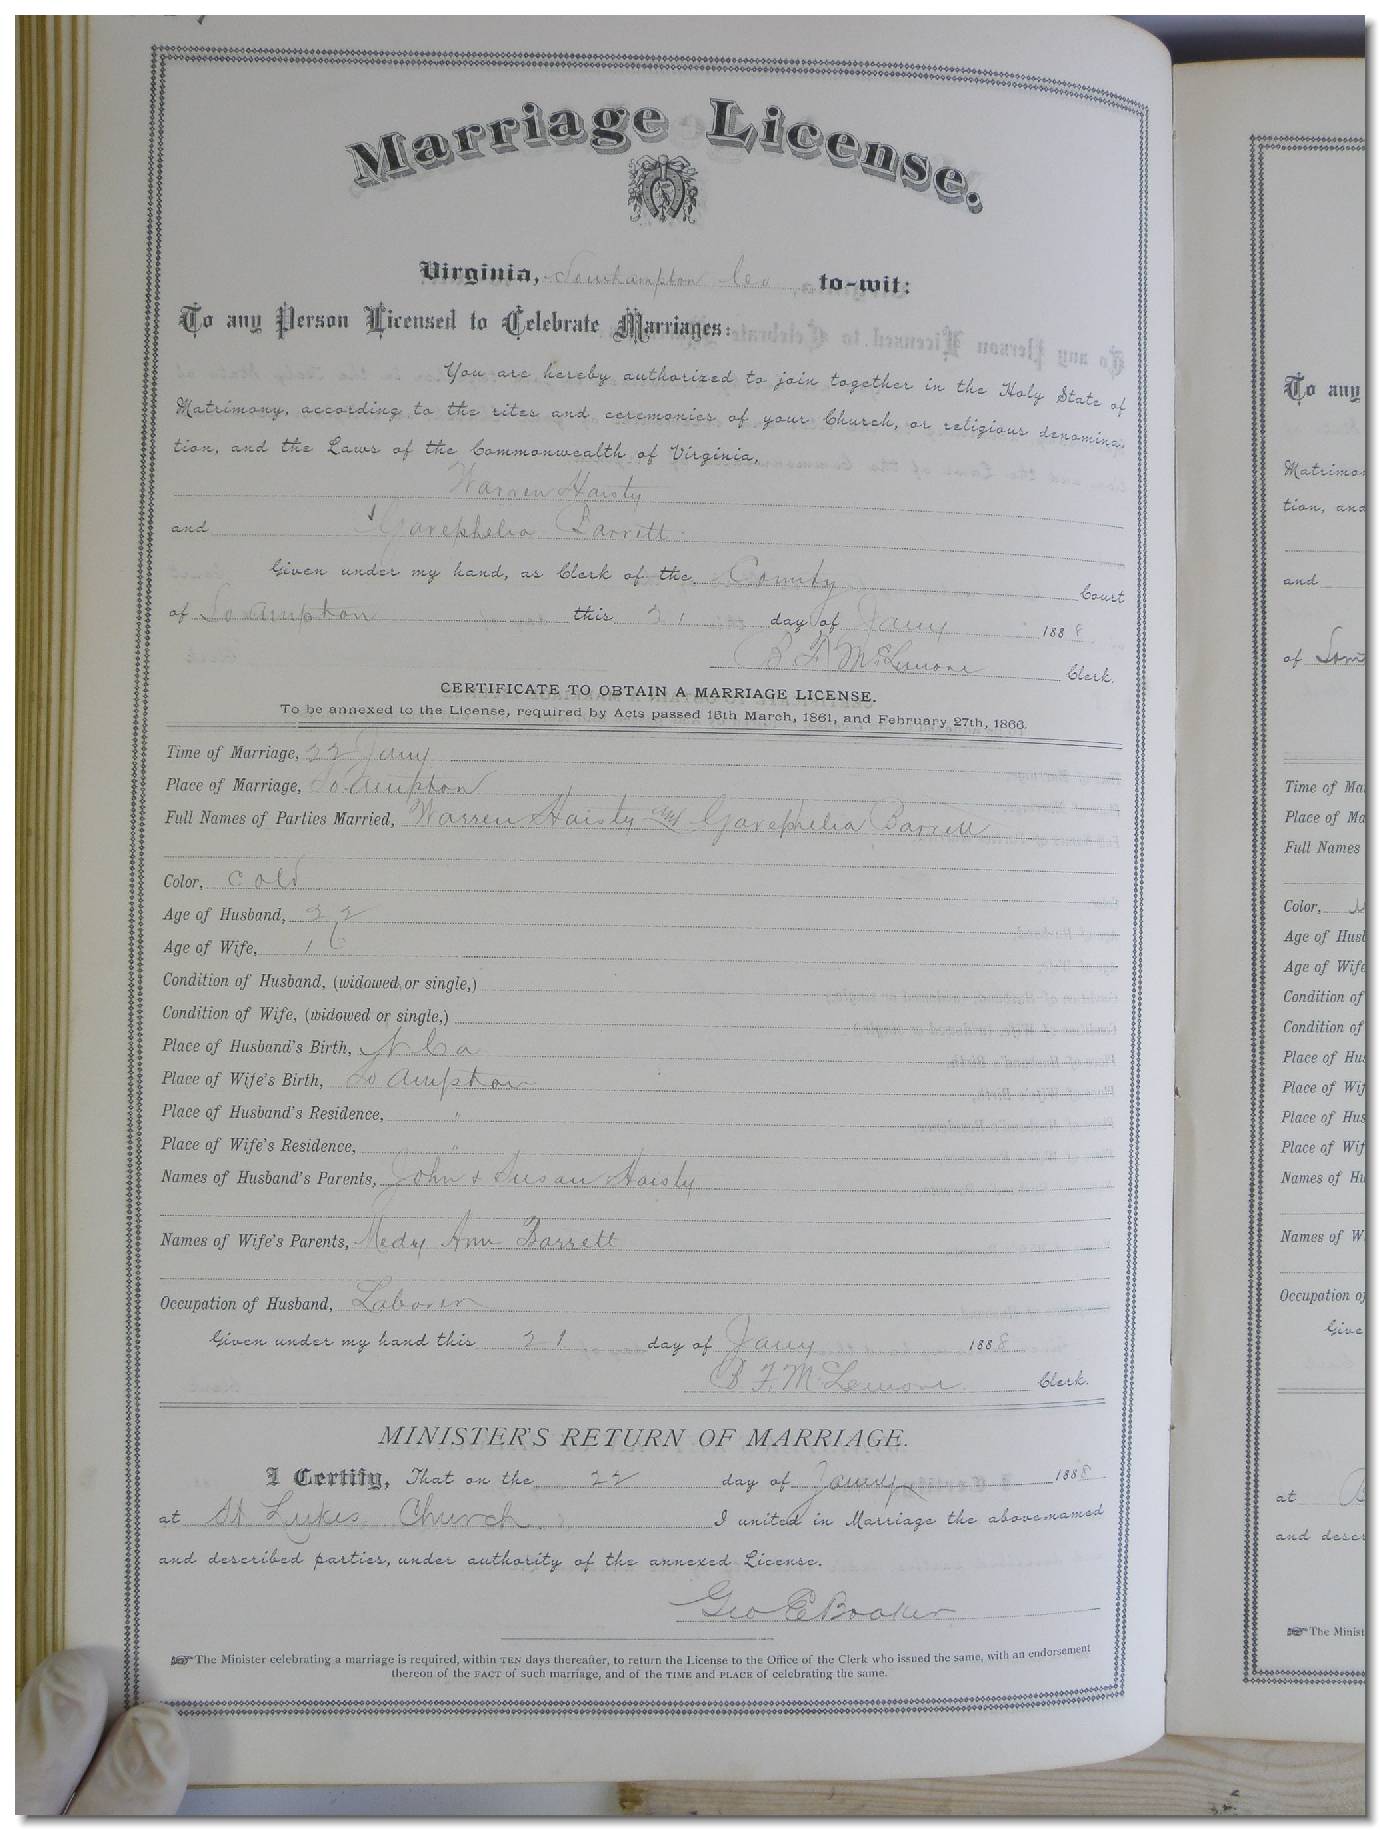 Marriage License.
Virginia, Southampton Co to-wit:
To any Person Licensed to Celebrate Marriages:
You are hereby authorized to join together in the Holy State of
Matrimony, according to the rites and ceremonies of your Church, or religious denomina-
tion, and the Laws of the Commonwealth of Virginia,
Warren Haisty
and Gavephelia Barrett
Given under my hand, as Clerk of the County Court
of So ampton this 21 day of Jany 1888
B. F. McLemore Clerk.
CERTIFICATE TO OBTAIN A MARRIAGE LICENSE.
To be annexed to the License, required by Acts passed 15th March, 1861, and February 27th, 1866.
Time of Marriage, 22 Jany
Place of Marriage, So ampton
Full Names of Parties Married, Warren Haisty and Gavephelia Barrett
Color, Cold
Age of Husband, 22
Age of Wife, 16
Condition of Husband, (widowed or single,)
Condition of Wife, (widowed or single,)
Place of Husband's Birth, N. Ca
Place of Wife's Birth, So ampton
Place of Husband's Residence, "
Place of Wife's Residence,
Names of Husband's Parents, John & Susan Haisty
Names of Wife's Parents, Medy Ann Barrett
Occupation of Husband, Laborer
Given under my hand this 21 day of Jany 1888
B. F. McLemore Clerk.
MINISTER'S RETURN OF MARRIAGE.
I Certify, That on the 22 day of Jany 1888
at St Lukes Church I united in Marriage the above-named
and described parties, under authority of the annexed License.
Geo E Booker
The Minister celebrating a marriage is required, within TEN days thereafter, to return the License to the Office of the Clerk who issued the same, with an endorsement
thereon of the FACT of such marriage, and of the TIME and PLACE of celebrating the same.
To any
Matrimo
tion, and
and
of
Time of Ma
Place of Ma
Full Names
Color,
Age of Husb
Age of Wife
Condition of
Condition of
Place of Hus
Place of Wif
Place of Hus
Place of Wif
Names of Hu
Names of W
Occupation of
Give
at B
and descr
The Minist